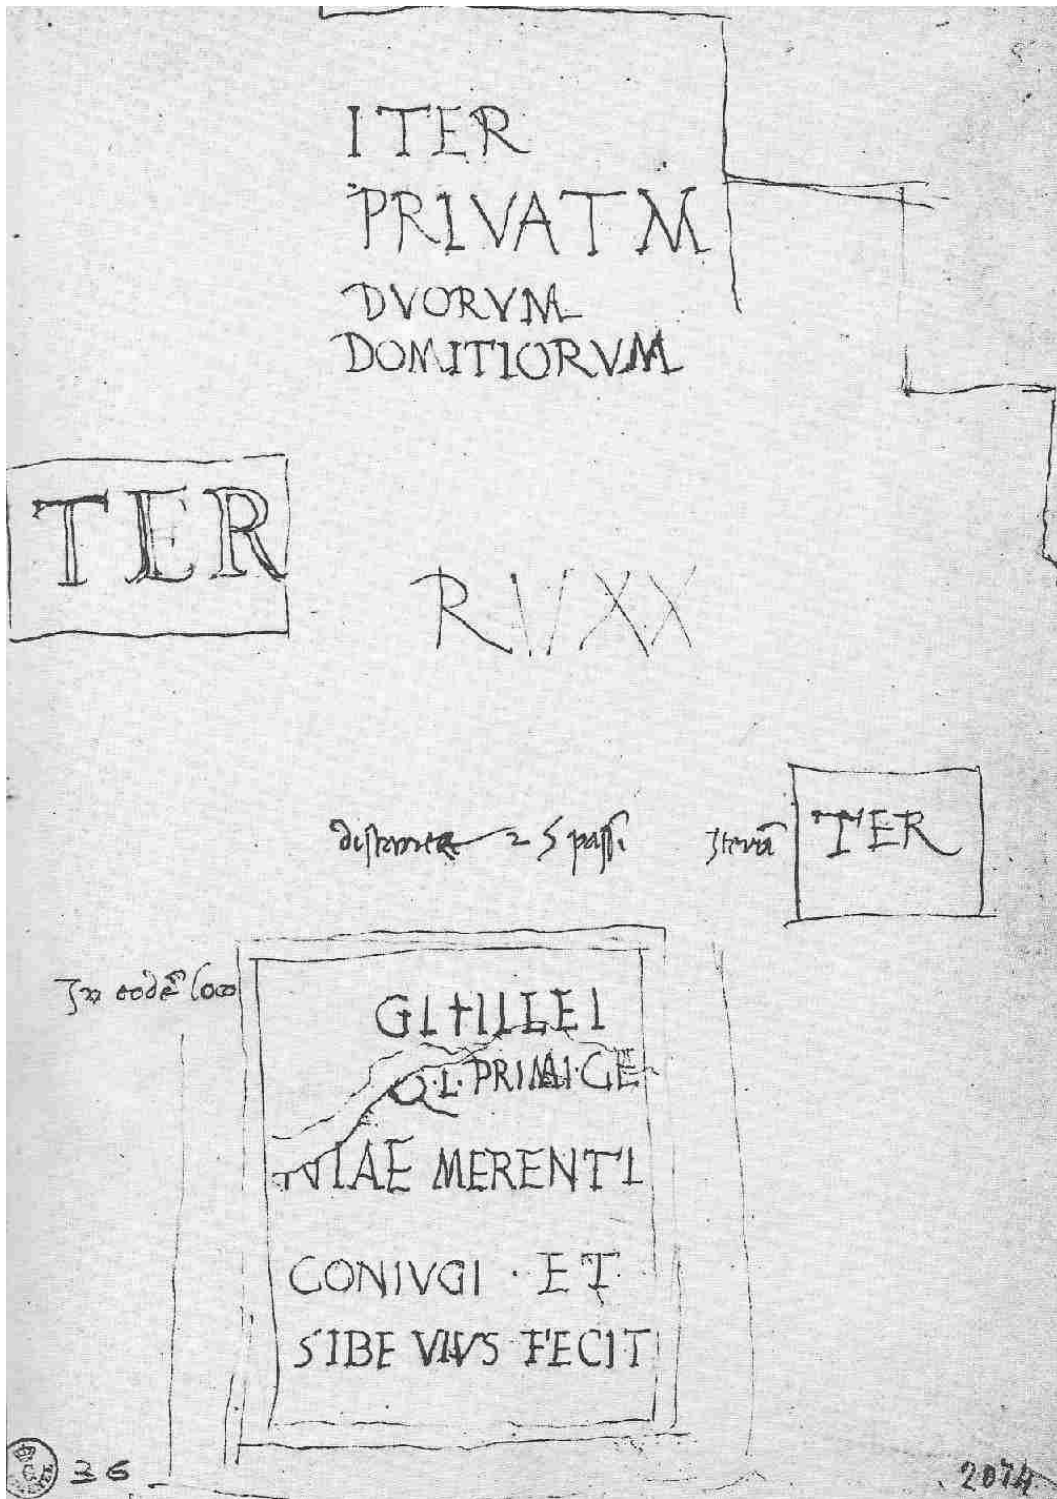 ITER
PRIVATM
DVORVM
DOMITIORVM
TER
R V XX
distante 25 passi
Iterũ TER
In eodẽ loco
PRIMI·GE
NIAE MERENTI
CONIVGI · ET
SIBE VIVS FECIT
36
2074